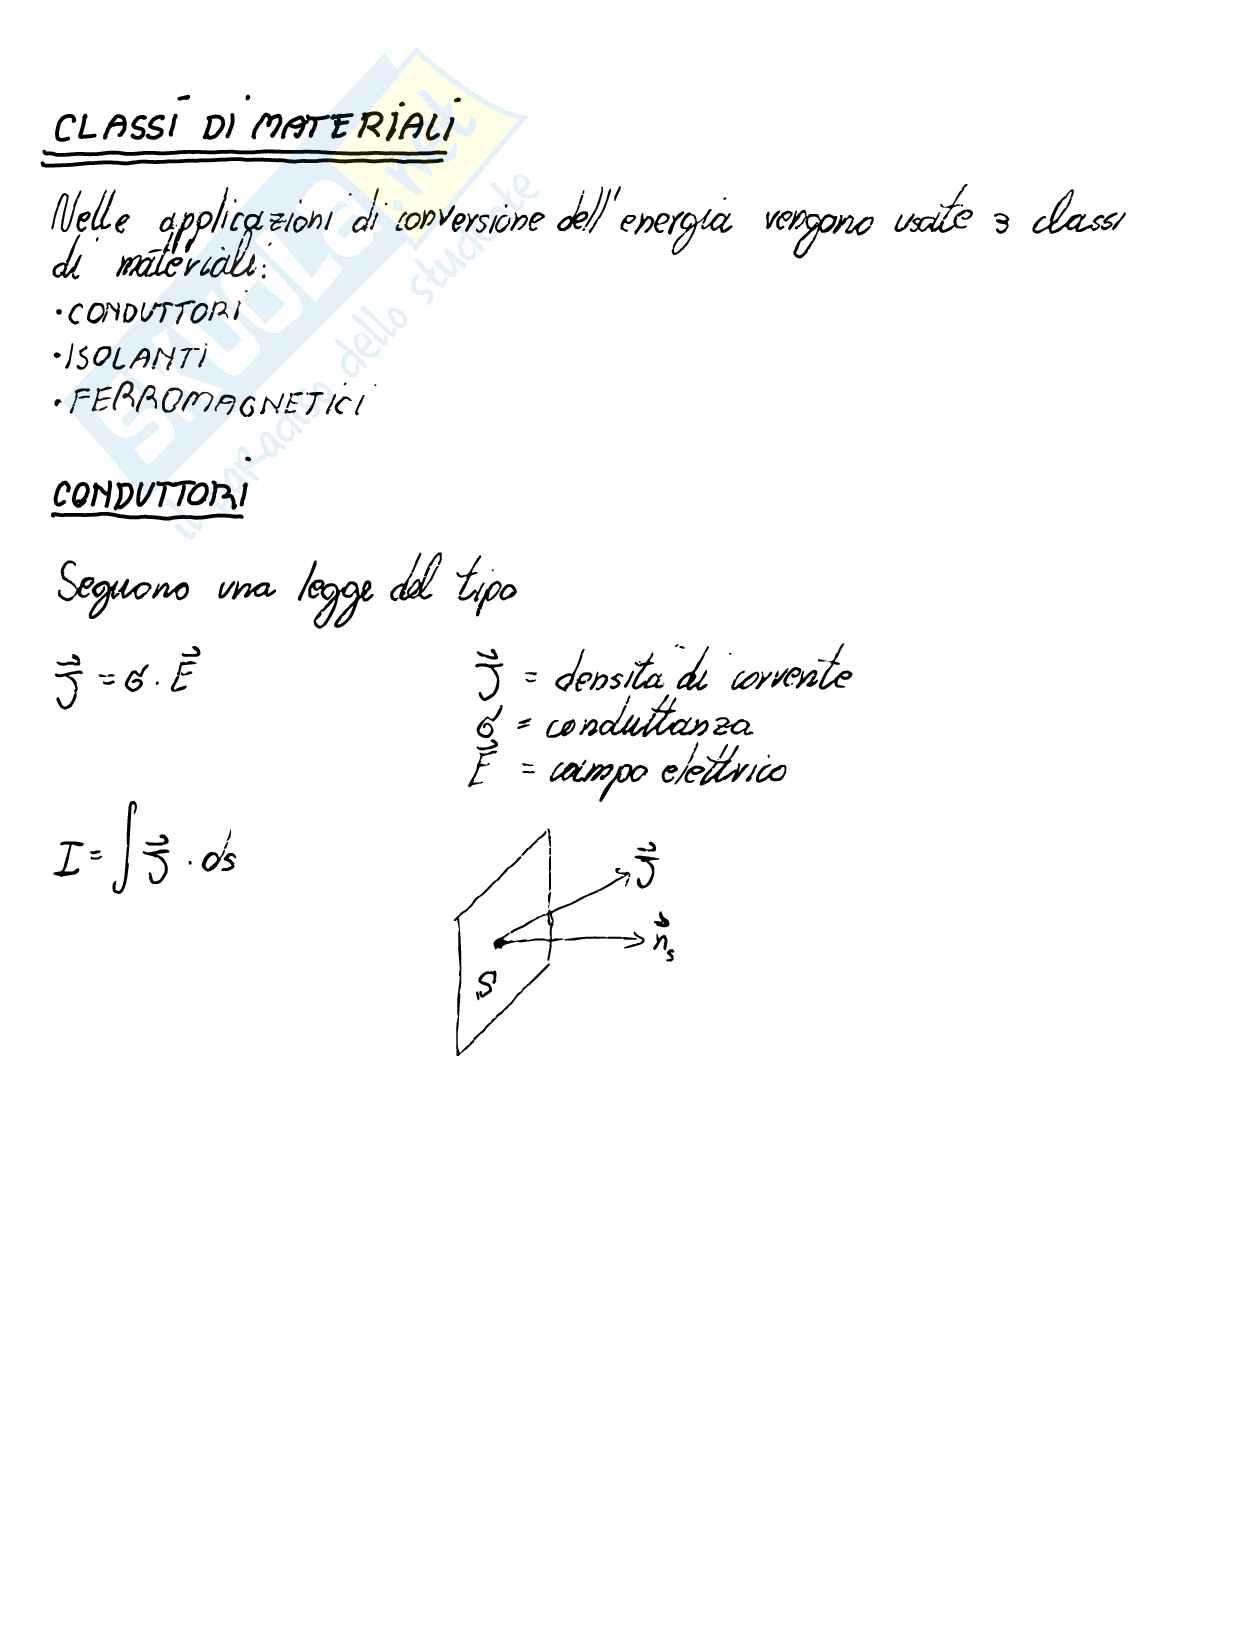 CLASSI DI MATERIALI
Nelle applicazioni di conversione dell'energia vengono usate 3 classi
di materiali:
• CONDUTTORI
• ISOLANTI
• FERROMAGNETICI
CONDUTTORI
Seguono una legge del tipo
J⃗ = σ · E⃗
J⃗ = densità di corrente
σ = conduttanza
E⃗ = campo elettrico
I = ∫ J⃗ · ds
J⃗
n⃗s
S
SKUOLA.net
il paradiso dello studente